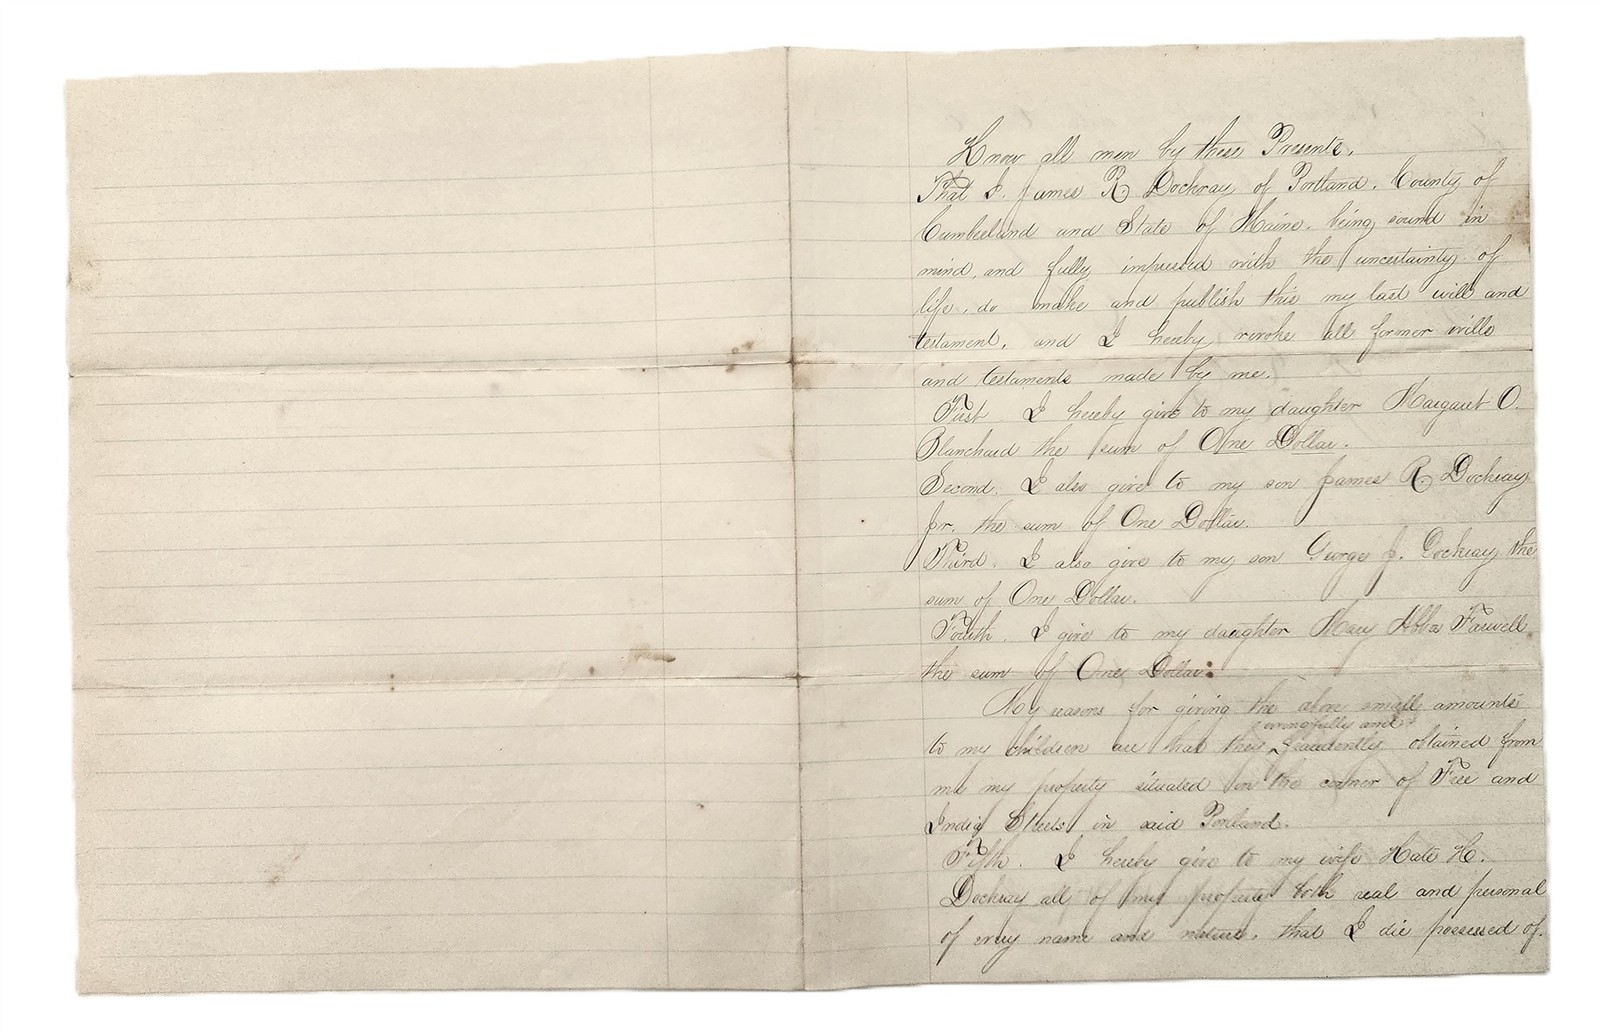 Know all men by these Presents,
That I, James R. Dockray of Portland, County of
Cumberland and State of Maine, being sound in
mind, and fully impressed with the uncertainty of
life, do make and publish this my last will and
testament, and I hereby revoke all former wills
and testaments made by me.
First I hereby give to my daughter Margaret O.
Blanchard the sum of One Dollar.
Second. I also give to my son James R. Dockray
Jr. the sum of One Dollar.
Third. I also give to my son George J. Dockray the
sum of One Dollar.
Fourth. I give to my daughter Mary Abba Farwell
the sum of One Dollar.
My reasons for giving the above small amounts
wrongfully and
to my children are that they fraudently obtained from
me my property situated on the corner of Free and
India Streets in said Portland.
Fifth. I hereby give to my wife Kate H.
Dockray all of my property both real and personal
of every name and nature, that I die possessed of.